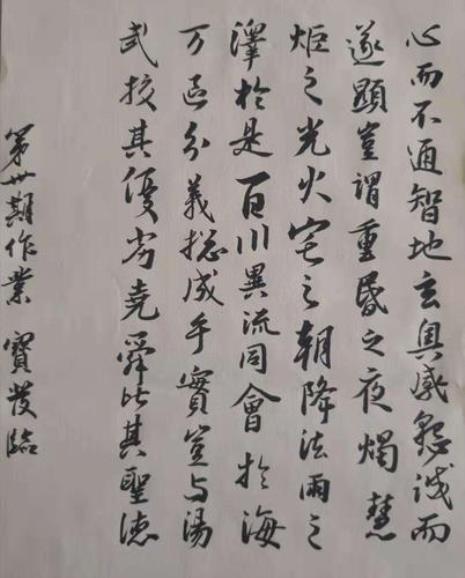 心而不通智地玄奥感懇诚而
遂顯豈謂重昏之夜燭慧
炬之光火宅之朝降法雨之
澤於是百川異流同會於海
万區分義揔成乎實豈与湯
武校其優劣堯舜比其聖德
第卅期作業 寶發臨